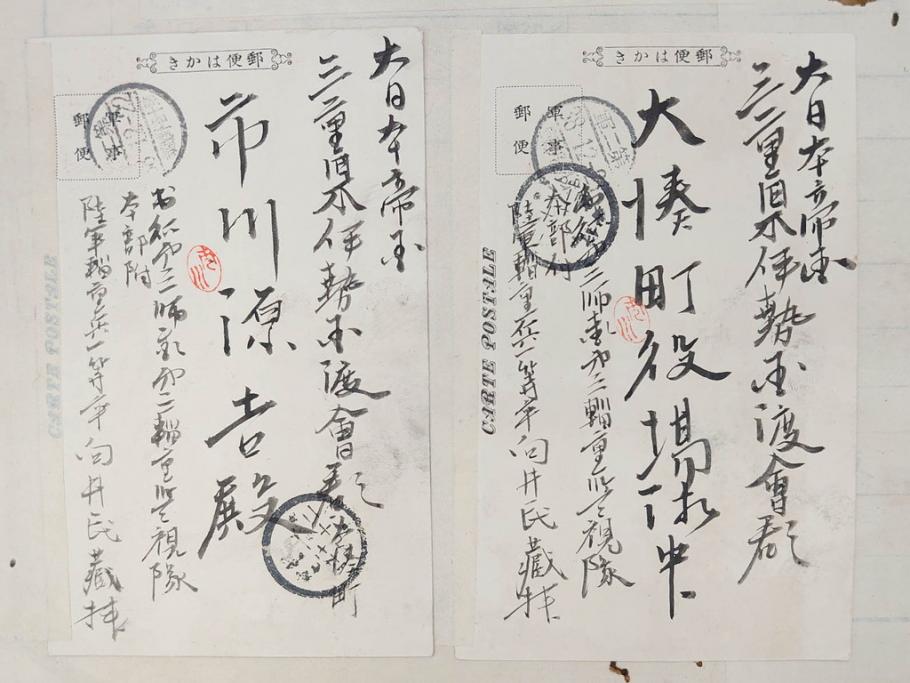 郵便はかき
大日本帝国
三重県伊勢国渡會郡
大湊町役場御中
軍事
郵便
第三師団第二輜重監視隊
本部付
陸軍輜重兵一等卒向井民藏拝
CARTE POSTALE
郵便はかき
大日本帝国
三重県伊勢国渡會郡大湊町
市川源吉殿
軍事
郵便
出征第三師団第二輜重監視隊
本部附
陸軍輜重兵一等卒向井民藏拝
CARTE POSTALE